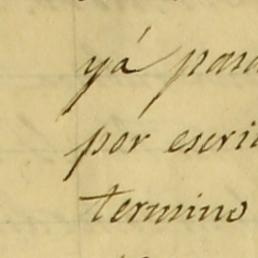 yá para
por escri
termino